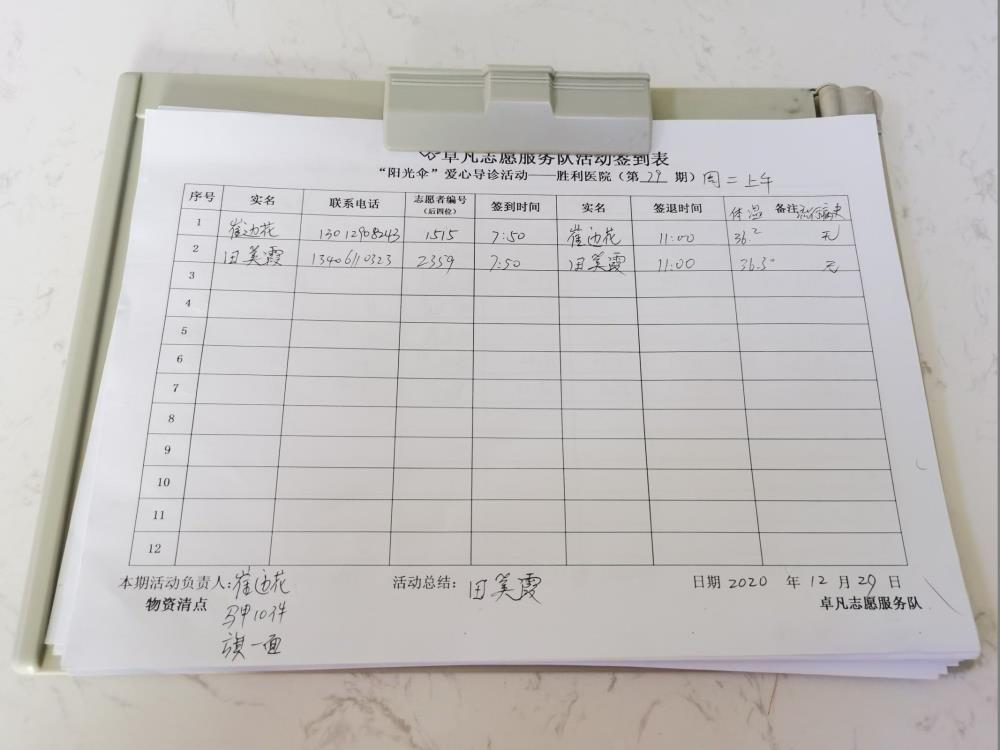 卓凡志愿服务队活动签到表
“阳光伞”爱心导诊活动——胜利医院（第 29 期）周二上午
序号 实名 联系电话 志愿者编号（后四位） 签到时间 实名 签退时间 体温 备注 流行病史
1 崔边花 13012908243 1515 7:50 崔边花 11:00 36.2 无
2 田美霞 13406110323 2359 7:50 田美霞 11:00 36.3° 无
3
4
5
6
7
8
9
10
11
12
本期活动负责人：崔边花 活动总结：田美霞 日期 2020 年 12 月 29 日
物资清点 卓凡志愿服务队
马甲10件
旗一面